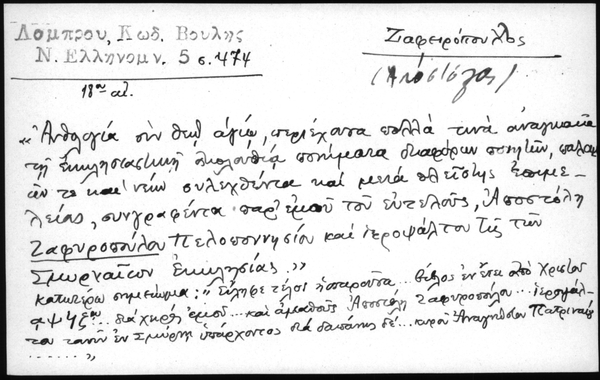 Λάμπρου, Κωδ. Βουλῆς
Ν. Ἑλληνομν. 5 σ. 474
Ζαφειρόπουλος
(Ἀπόστολος)
18ου αἰ.
«Ἀνθολογία σὺν θεῷ ἁγίῳ, περιέχουσα πολλά τινα ἀναγκαῖα
τῇ ἐκκλησιαστικῇ ἀκολουθίᾳ ποιήματα διαφόρων ποιητῶν, παλαι
ῶν τε καὶ νέων συλεχθέντα καὶ μετὰ πλείστης ἐπιμε-
λείας, συγγραφέντα παρ' ἐμοῦ τοῦ εὐτελοῦς, Ἀποστόλη
Ζαφυροπούλου Πελοποννησίου καὶ ἱεροψάλτου τῆς τῶν
Σμυρναίων Ἐκκλησίας.»
κατωτέρω σημείωμα: «Εἴληφε τέλος ἡ παροῦσα... βίβλος ἐν ἔτει ἀπὸ Χριστοῦ
διὰ χειρὸς ἐμοῦ... καὶ ἀμαθοῦς Ἀποστόλη Ζαφυροπούλου... ἱεροψάλ-
του τανῦν ἐν Σμύρνῃ ὑπάρχοντος διὰ δαπάνης δέ... κυροῦ Ἀναγνώστου
....... »